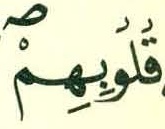 قُلُوبِهِمْ ۖ